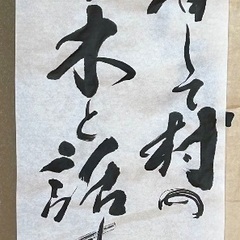 して村の
木と話